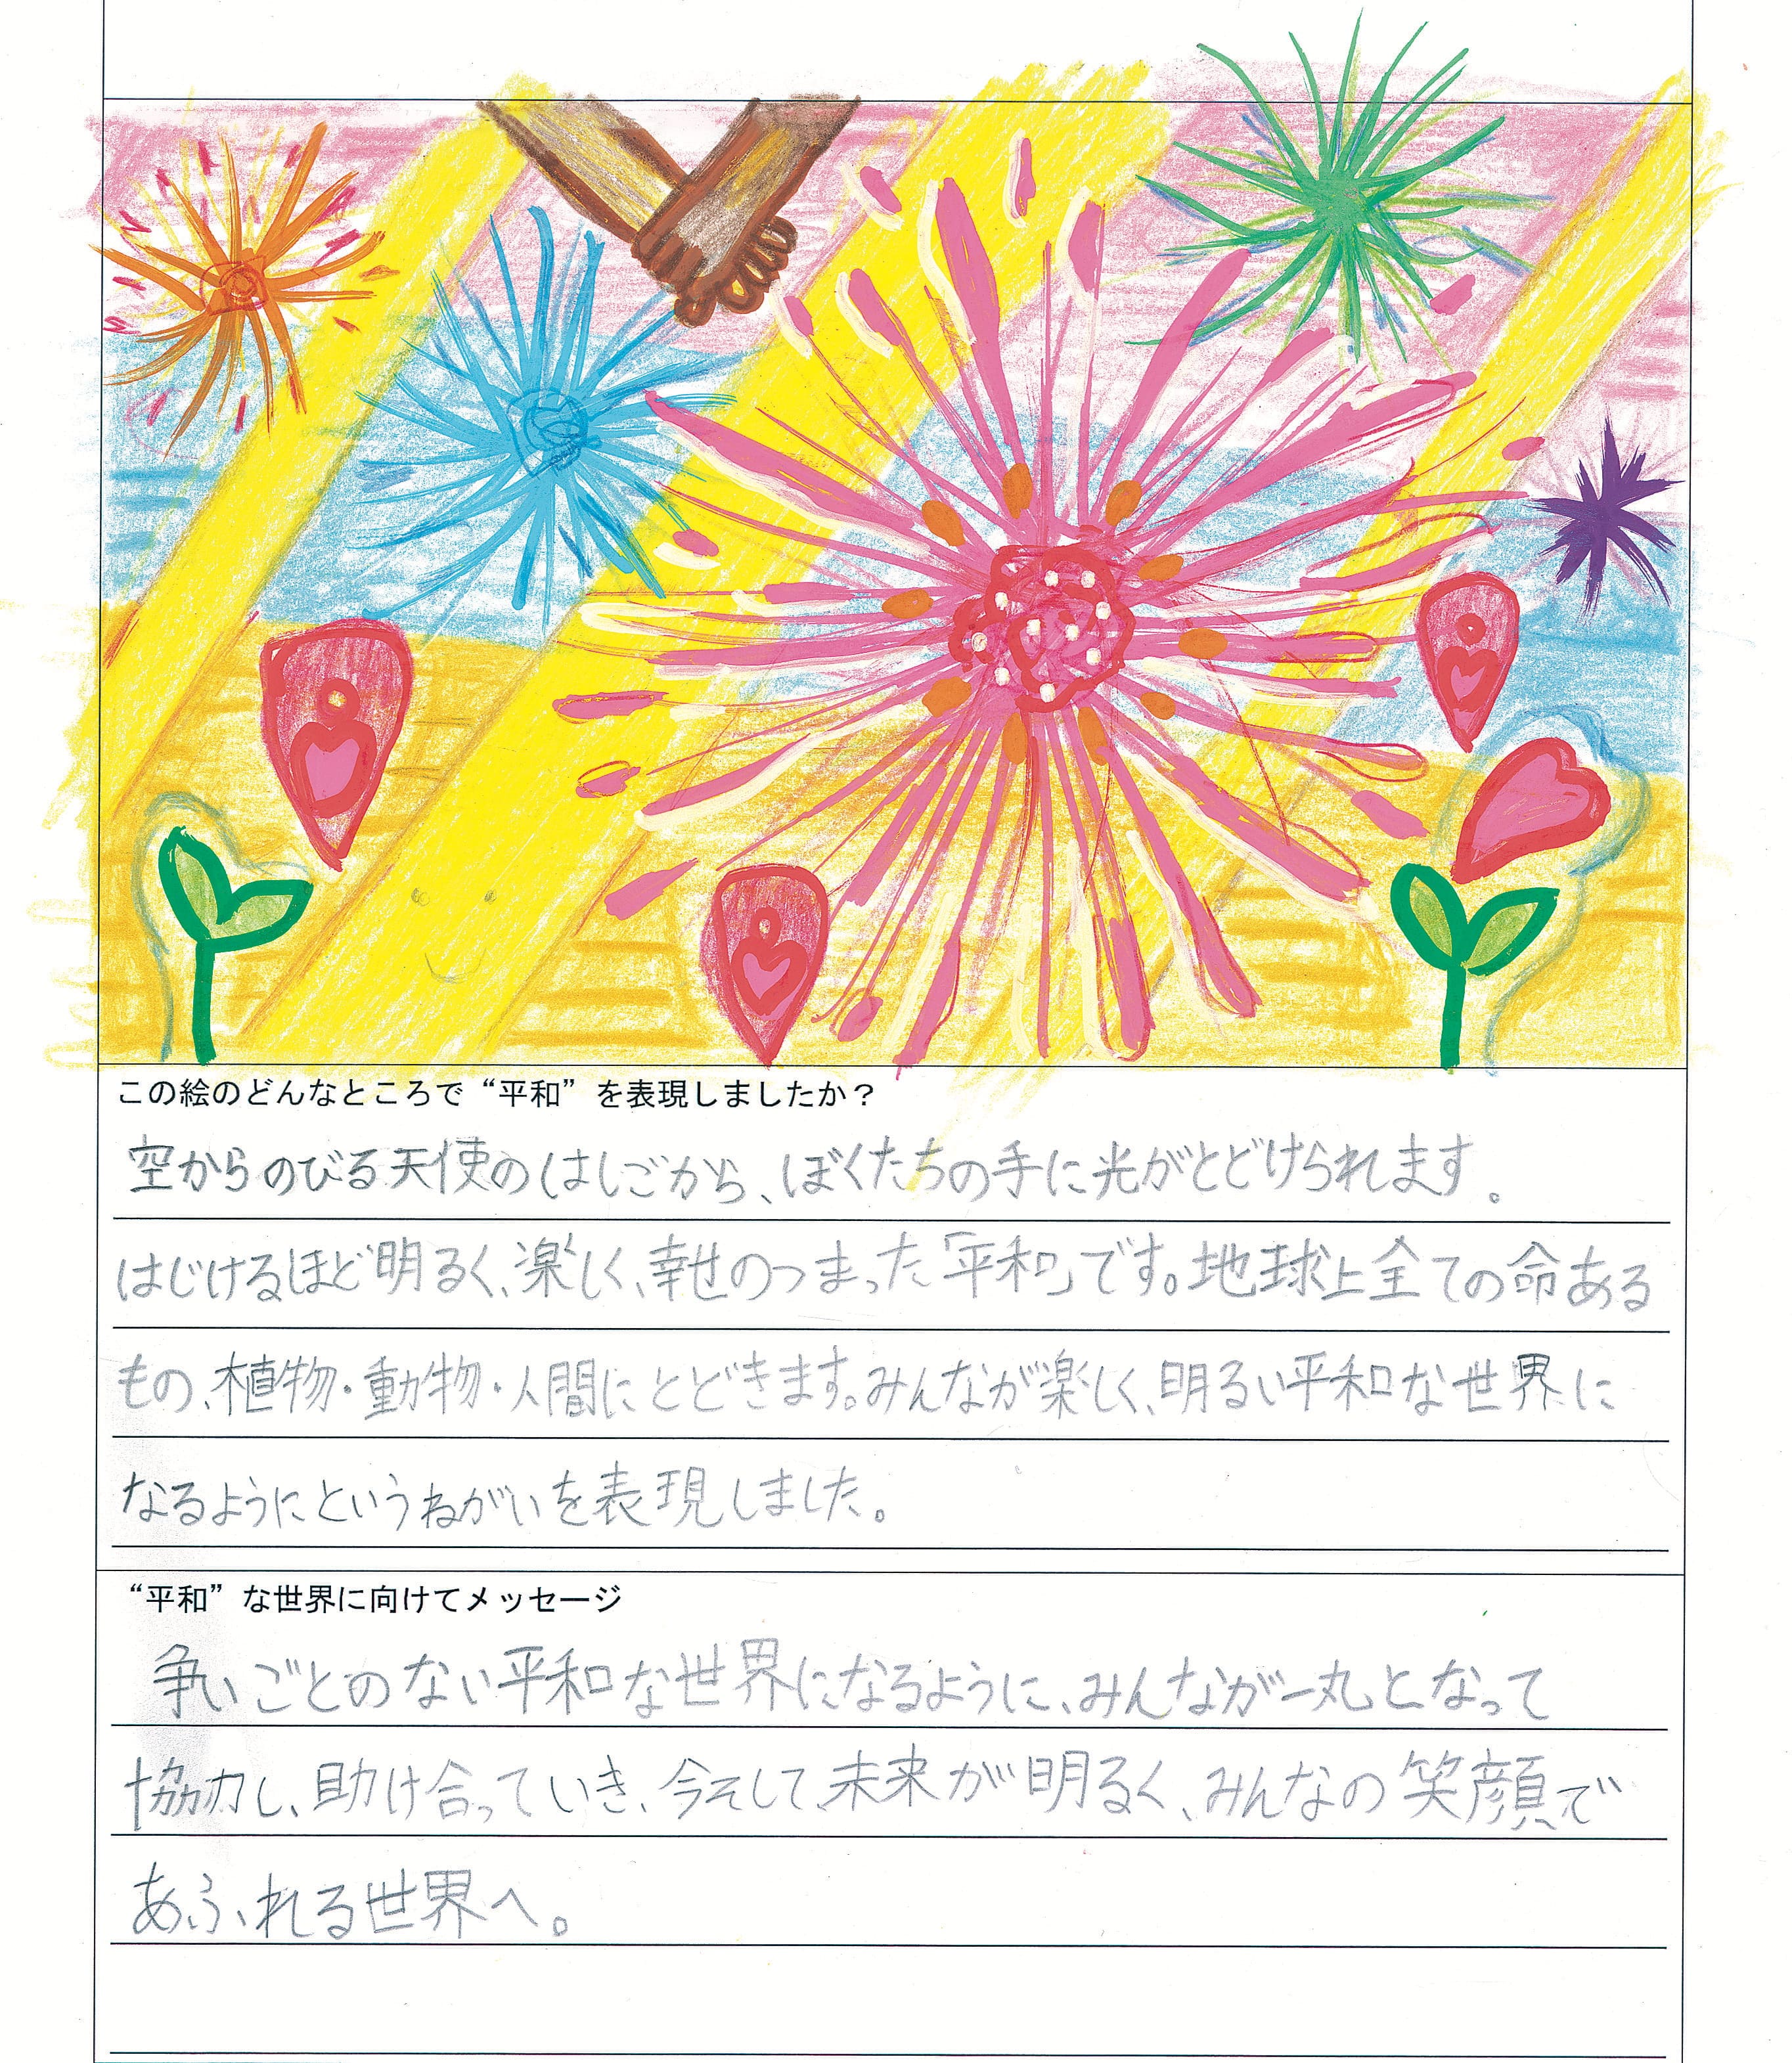 この絵のどんなところで“平和”を表現しましたか？
空からのびる天使のはしごから、ぼくたちの手に光がとどけられます。
はじけるほど明るく、楽しく、幸せのつまった「平和」です。地球上全ての命ある
もの、植物・動物・人間にとどきます。みんなが楽しく、明るい平和な世界に
なるようにというねがいを表現しました。
“平和”な世界に向けてメッセージ
争いごとのない平和な世界になるように、みんなが一丸となって
協力し、助け合っていき、今そして、未来が明るく、みんなの笑顔で
あふれる世界へ。